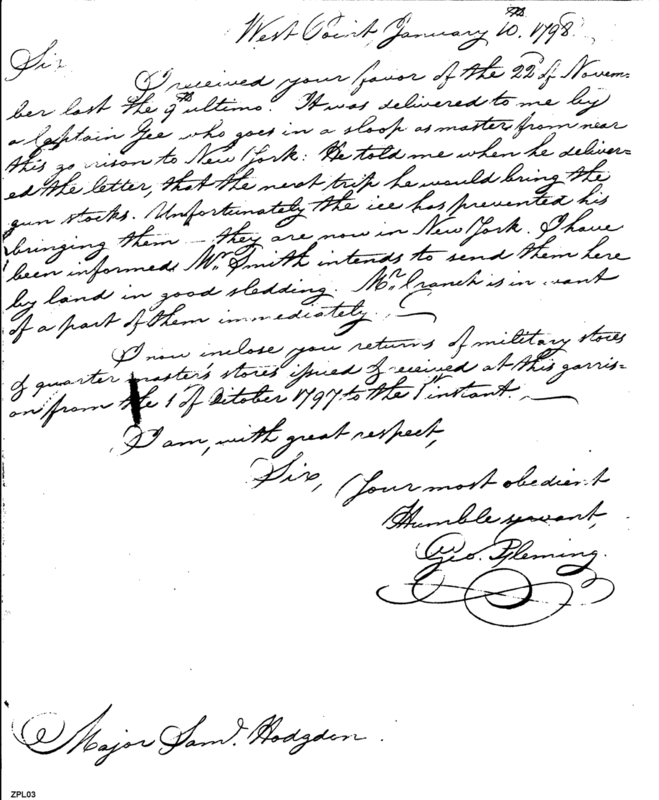 West Point, January 10th. 1798.
Sir
I received your favor of the 22d of Novem=
ber last the 9th ultimo. It was delivered to me by
a Captain Gee who goes in a sloop as master from near
this garrison to New York: He told me when he deliver=
ed the letter, that the next trip he would bring the
gun stocks. Unfortunately the ice has prevented his
bringing them — they are now in New York. I have
been informed Mr. Smith intends to send them here
by land in good sledding. Mr. Cranch is in want
of a part of them immediately. —
I now inclose you returns of military stores
& quarter masters stores issued & received at this garris=
on from the 1st of October 1797 to the 1st instant. —
I am, with great respect,
Sir, Your most obedient
Humble servant,
Geo. Fleming.
Major Saml. Hodgdon.
ZPL03